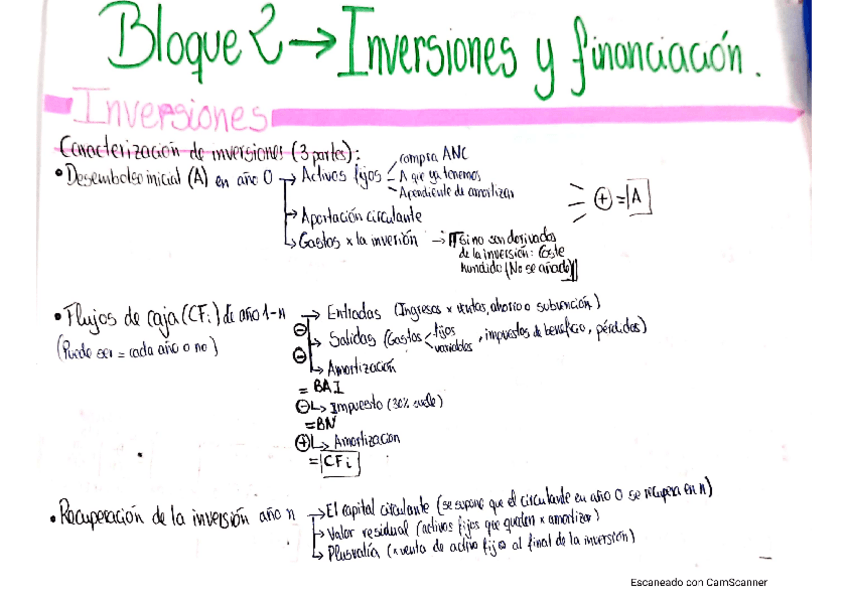 Bloque 2 → Inversiones y financiación.
Inversiones
Caracterización de inversiones (3 partes):
• Desembolso inicial (A) en año 0 → Activos fijos
compra ANC
A que ya tenemos
Apendiente de amortizar
→ Aportación circulante
→ Gastos x la inversión → [Si no son derivados
de la inversión: Coste
hundido (No se añade)]
⊕ = A
• Flujos de caja (CFi) de año 1-n → Entradas (Ingresos x ventas, ahorro o subvención)
(Puede ser = cada año o no)
⊖ → Salidas (Gastos fijos variables, impuestos de beneficio, pérdidas)
⊖ → Amortización
= BAI
⊖ → Impuesto (30% suele)
= BN
⊕ → Amortización
= CFi
• Recuperación de la inversión año n → El capital circulante (se supone que el circulante en año 0 se recupera en n)
→ Valor residual (activos fijos que queden x amortizar)
→ Plusvalía (x venta de activo fijo al final de la inversión)
Escaneado con CamScanner